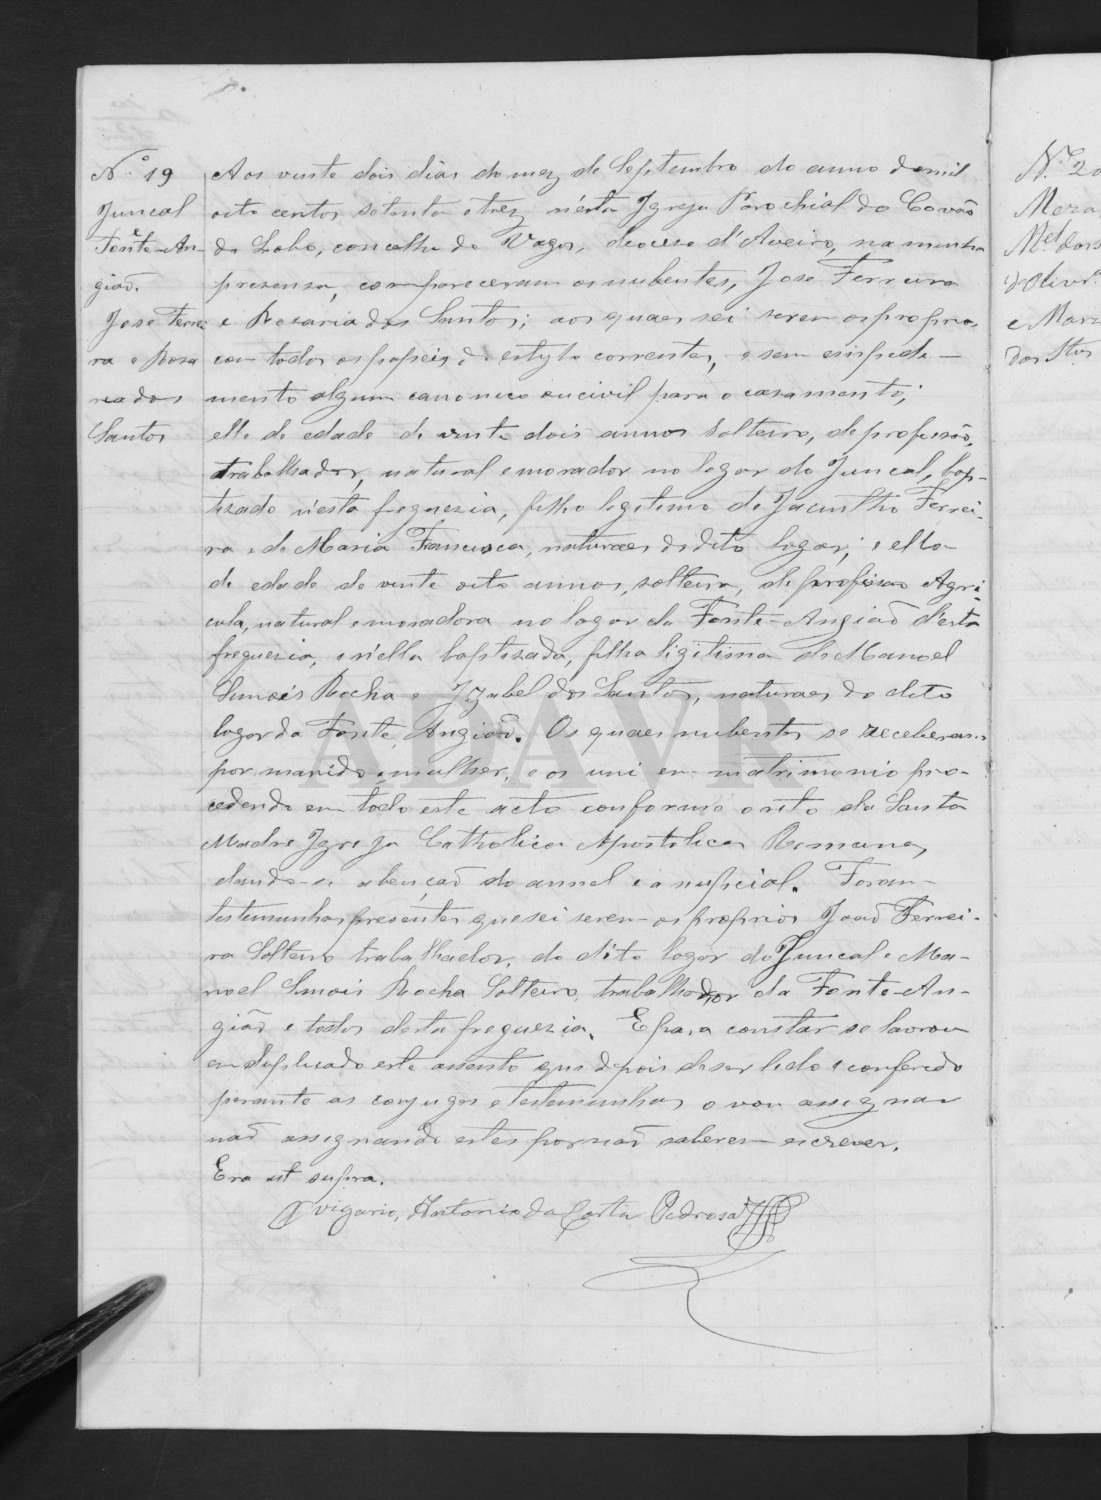 Nº 19
Juncal
Fonte-An-
gião.
Jose Ferrei-
ra e Rosa
ria dos
Santos
Aos vinte dois dias do mez de Septembro do anno de mil
oito centos setenta e trez, n'esta Igreja Parochial do Covão
do Lobo, concelho de Vagos, diocese d'Aveiro, na minha
presensa, compareceram os nubentes, Jose Ferreira
e Rosaria dos Santos; aos quaes sei serem os proprios
com todos os papeis do estylo correntes, e sem empede-
mento algum canonico ou civil para o casamento;
elle de edade de vinte dois annos solteiro, de profissão,
trabalhador, natural e morador no logar do Juncal, bap-
tizado n'esta freguesia, filho legitimo de Jacintho Ferrei-
ra e de Maria Francisca, naturaes do dito logar; e ella
de edade de vinte oito annos, solteira, de profissão Agri-
cula, natural e moradora no logar da Fonte-Angião d'esta
freguesia, e n'ella baptisada, filha ligitima de Manoel
Simois Rocha e Izabel dos Santos, naturaes do dito
logar da Fonte Angião. Os quaes nubentes se receberam
por marido e mulher, e os uni em matrimonio pro-
cedendo em todo este acto conforme o rito da Santa
Madre Igreja Catholica Apostolica Romana,
dando-se a benção do annel e a nupcial. Foram
testemunhas presentes que sei serem os proprios João Ferrei-
ra Solteiro trabalhador, do dito logar do Juncal e Ma-
noel Simois Rocha Solteiro, trabalhador da Fonte-An-
gião e todos desta freguezia. E para constar se lavrou
em duplicado este assento que depois de ser lido e conferido
perante os conjuges e testemunhas o vou assignar
não assignando estes por não saberem escrever.
Era ut supra.
O vigario, Antonio da Costa Pedrosa
Nº 20
Mel dos
d'Olivrª
e Mari
dos Stos
AEAVR